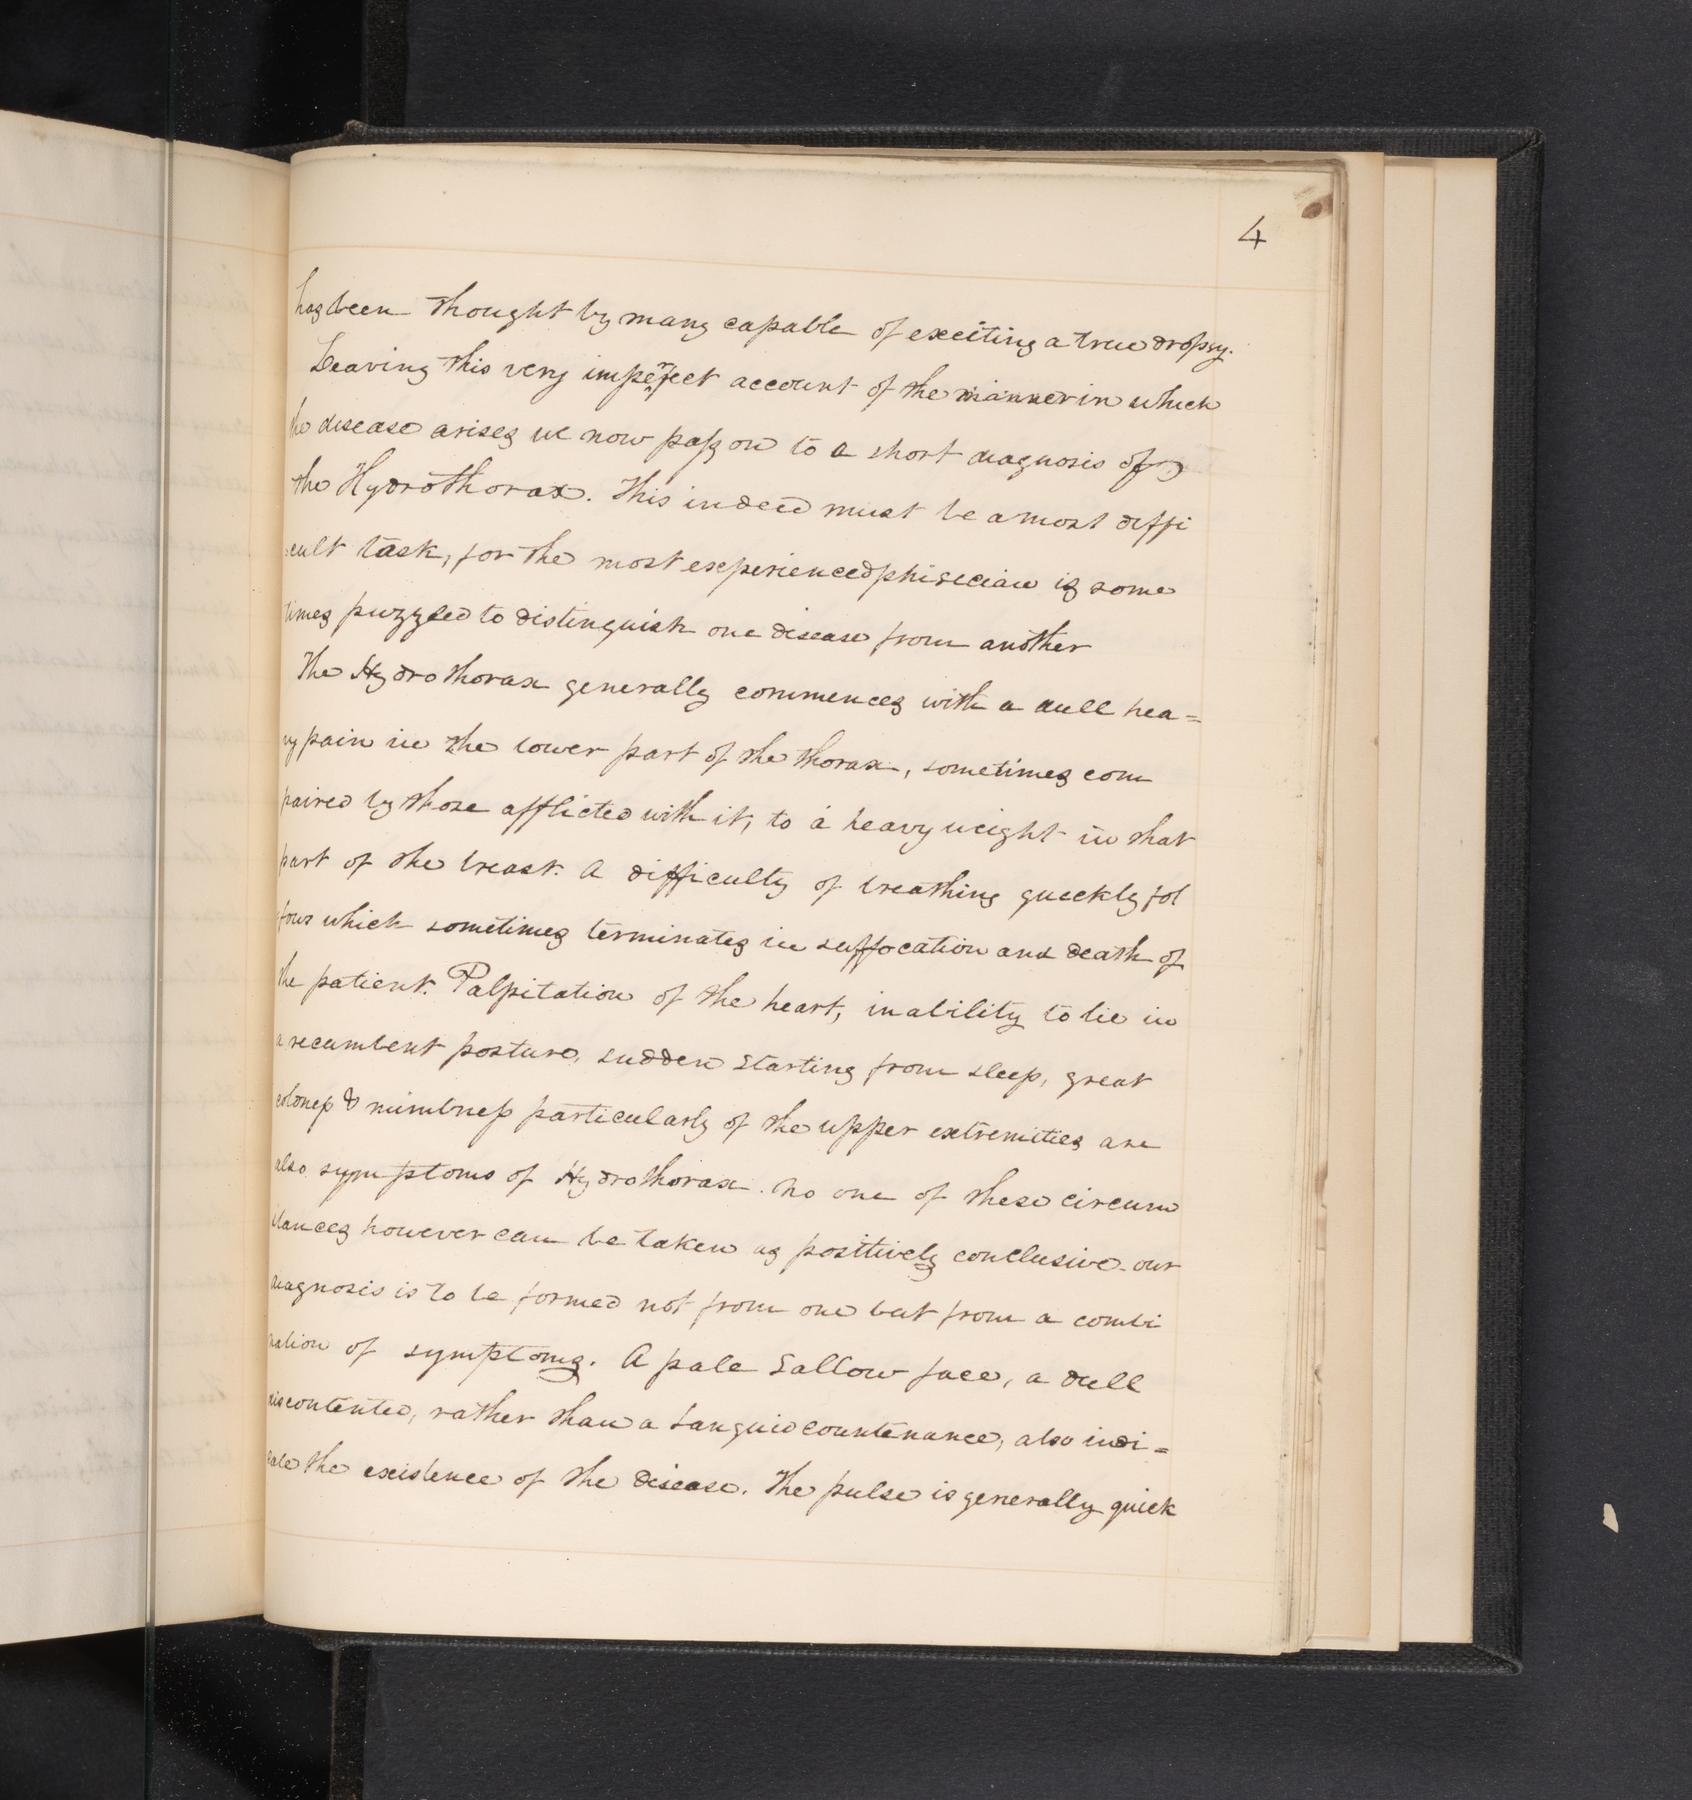 4
has been thought by many capable of exciting a true dropsy.
Leaving this very imperfect account of the manner in which
the disease arises we now pass on to a short diagnosis of
the Hydrothorax. This indeed must be a most diffi
cult task, for the most experienced phisician is some
times puzzled to distinguish one disease from another
The Hydrothorax generally commences with a dull hea=
vy pain in the lower part of the thorax, sometimes com
paired by those afflicted with it, to a heavy weight in that
part of the breast. A difficulty of breathing quickly fol
lows which sometimes terminates in suffocation and death of
the patient. Palpitation of the heart, inability to lie in
a recumbent posture, sudden starting from sleep, great
coldness & numbness particularly of the upper extremities are
also symptoms of Hydrothorax. No one of these circum
stances however can be taken as positively conclusive. our
diagnosis is to be formed not from one but from a combi
nation of symptoms. A pale Sallow face, a dull
discontented, rather than a languid countenance, also indi=
cate the existence of the disease. The pulse is generally quick